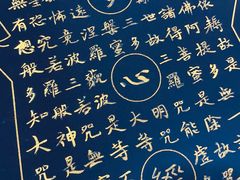 有恐怖遠
想究竟涅槃三世諸佛依
般若波羅蜜多故得阿耨
多羅三藐 心 三菩提故
知般若波 羅蜜多是
大神咒是大明咒是無
咒是無等等咒能除
虛故